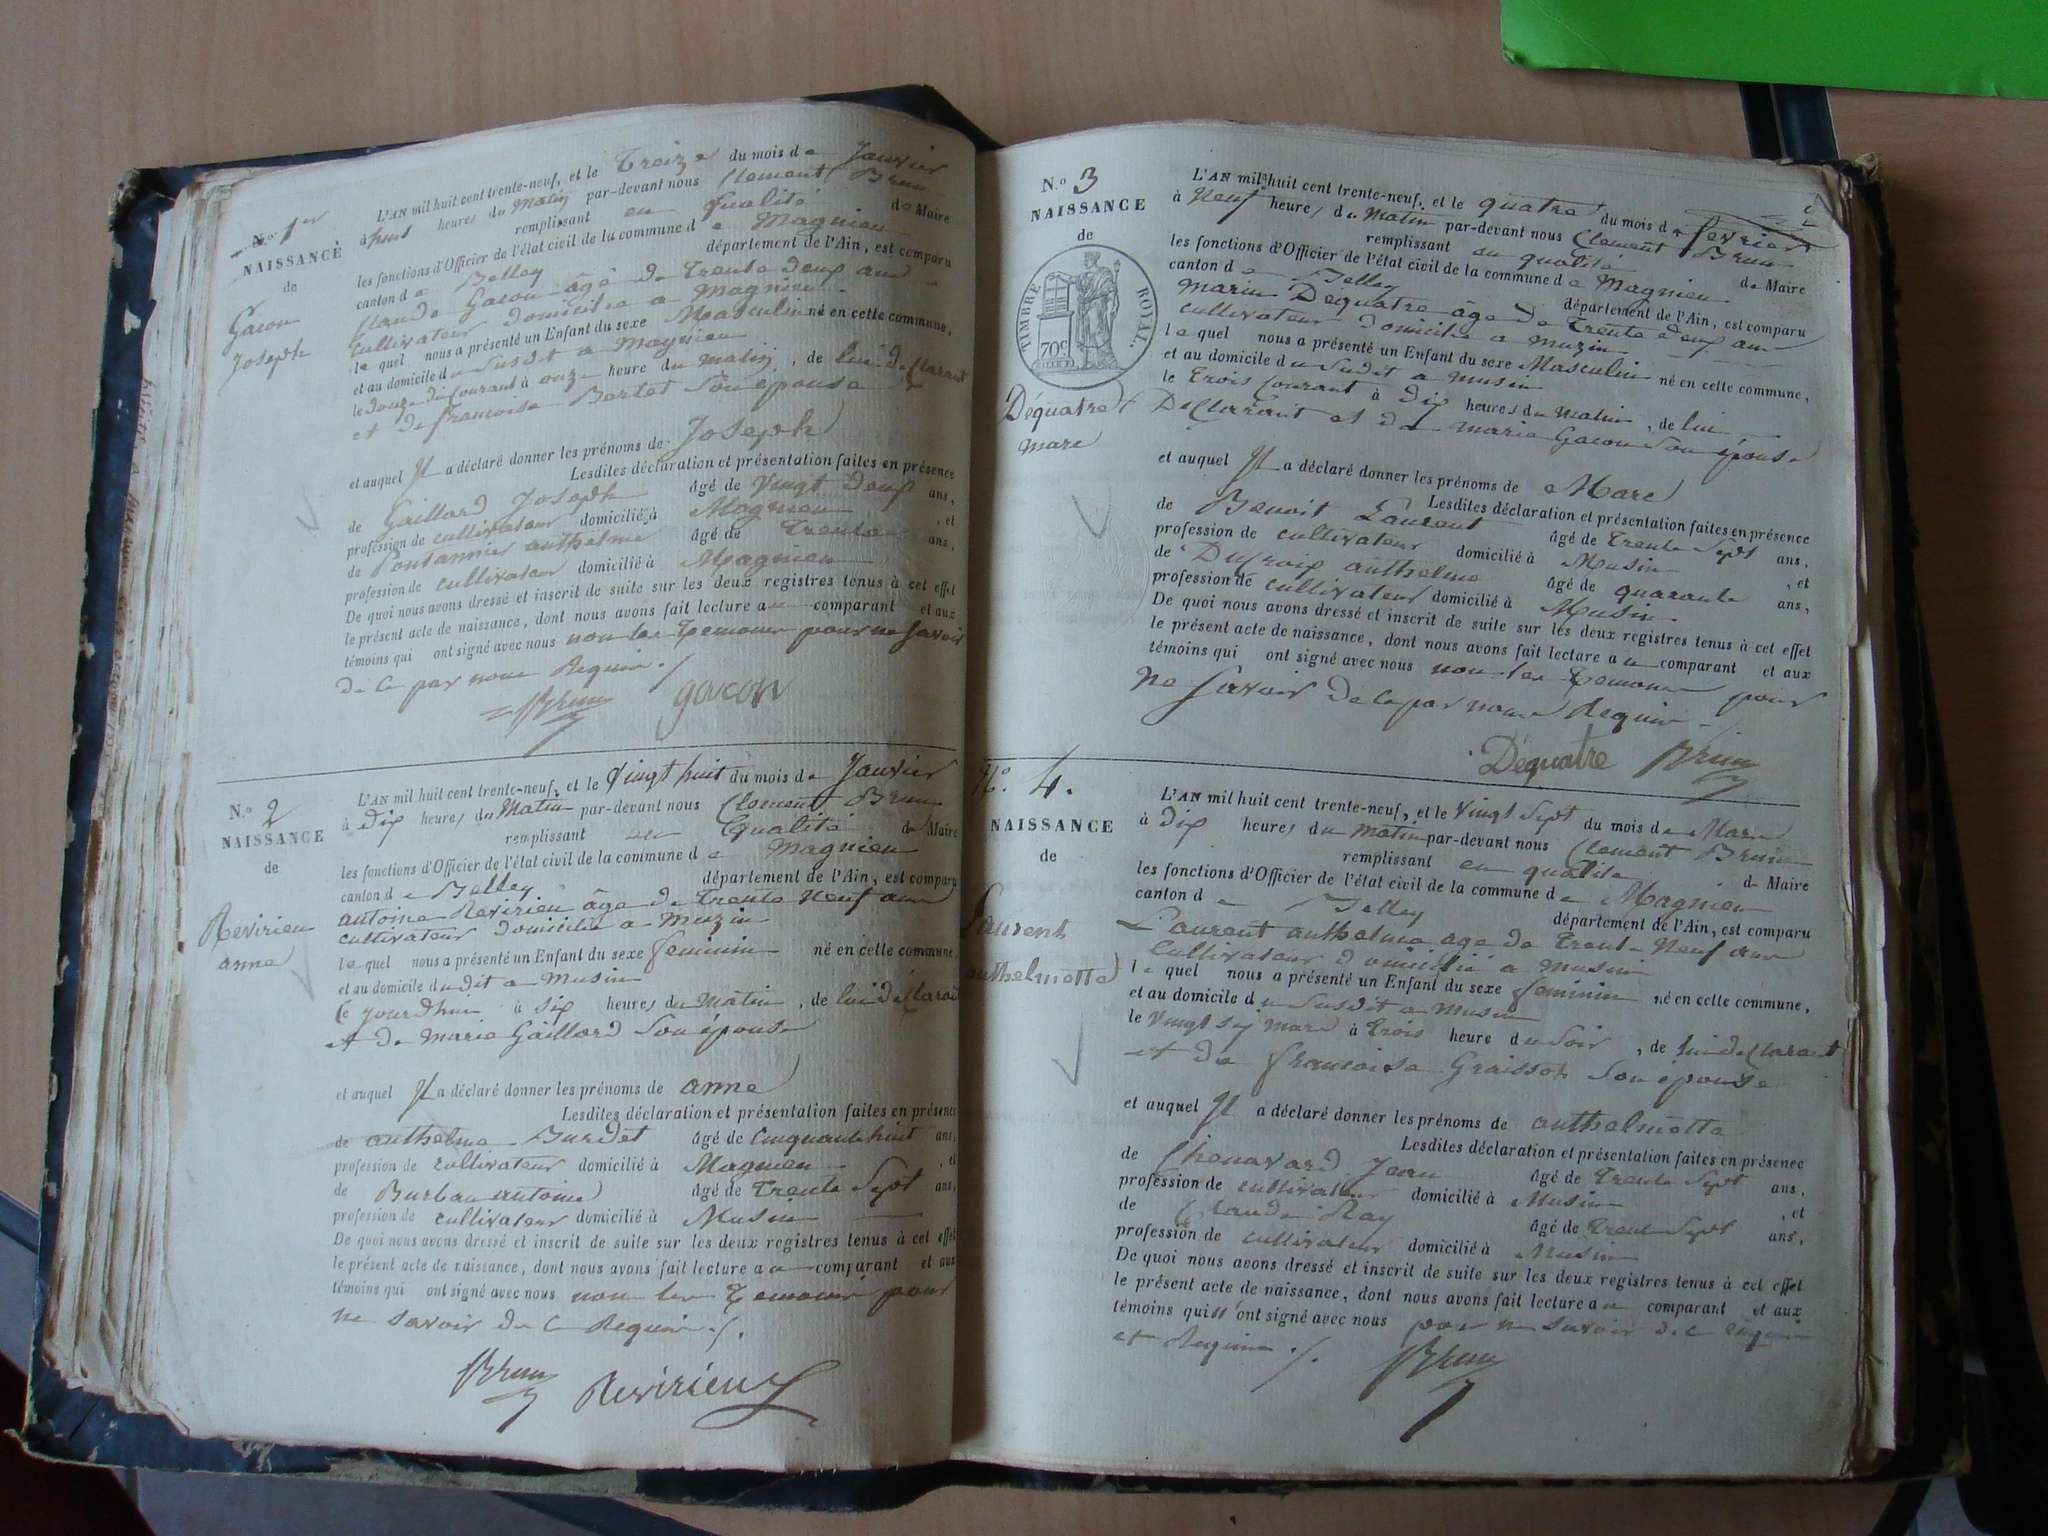 N.º 1er
NAISSANCE
de
Gacon
Joseph
L'AN mil huit cent trente-neuf, et le Treize du mois de Janvier
à huit heures du Matin par-devant nous Clement Brun
remplissant en qualité de Maire
les fonctions d'Officier de l'état civil de la commune de Magnieu
canton de Belley département de l'Ain, est comparu
Claude Gacon âgé de trente deux ans
cultivateur domicilié a Magnieu
lequel nous a présenté un Enfant du sexe Masculin né en cette commune,
et au domicile du susdit a Magnieu
le douze du courant à onze heure du matin, de lui déclarant
et de francoise Bertet son epouse
et auquel Il a déclaré donner les prénoms de Joseph
Lesdites déclaration et présentation faites en présence
de Gaillard Joseph âgé de vingt deux ans,
profession de cultivateur domicilié à Magnieu, et
de Pontannier anthelme âgé de trente ans,
profession de cultivateur domicilié à Magnieu
De quoi nous avons dressé et inscrit de suite sur les deux registres tenus à cet effet
le présent acte de naissance, dont nous avons fait lecture au comparant et aux
témoins qui ont signé avec nous non les temoins pour ne savoir
de ce par nous Requis ./
Brun gacon
N.º 2
NAISSANCE
de
Revirieu
anne
L'AN mil huit cent trente-neuf, et le vingt huit du mois de Janvier
à dix heures du Matin par-devant nous Clement Brun
remplissant en qualité de Maire
les fonctions d'Officier de l'état civil de la commune de Magnieu
canton de Belley département de l'Ain, est comparu
antoine Revirieu âgé de trente neuf ans
cultivateur domicilié a Muzin
lequel nous a présenté un Enfant du sexe feminin né en cette commune,
et au domicile dudit a Musin
Ce jourdhui à six heures du Matin, de lui déclarant
et de marie Gaillard son épouse
et auquel Il a déclaré donner les prénoms de anne
Lesdites déclaration et présentation faites en présence
de anthelme Burdet âgé de cinquante huit ans,
profession de cultivateur domicilié à Magnieu, et
de Burban antoine âgé de trente sept ans,
profession de cultivateur domicilié à Musin
De quoi nous avons dressé et inscrit de suite sur les deux registres tenus à cet effet
le présent acte de naissance, dont nous avons fait lecture au comparant et aux
témoins qui ont signé avec nous non les temoins pour
ne savoir de ce Requis ./.
Brun Revirieux
N.º 3
NAISSANCE
de
TIMBRE ROYAL.
70c
Déquatre
marc
L'AN mil huit cent trente-neuf, et le quatre du mois de fevrier
à Neuf heures du Matin par-devant nous Clement Brun
remplissant en qualité de Maire
les fonctions d'Officier de l'état civil de la commune de Magnieu
canton de Belley département de l'Ain, est comparu
marin Dequatre âgé de trente deux ans
cultivateur domicilié a muzin
lequel nous a présenté un Enfant du sexe Masculin né en cette commune,
et au domicile du susdit a musin
le trois courant à dix heures du Matin, de lui
Déclarant et de marie Gacon son épouse
et auquel Il a déclaré donner les prénoms de Marc
Lesdites déclaration et présentation faites en présence
de Benoit Laurent âgé de trente sept ans,
profession de cultivateur domicilié à Musin, et
de Ducroix anthelme âgé de quarante ans,
profession de cultivateur domicilié à Musin
De quoi nous avons dressé et inscrit de suite sur les deux registres tenus à cet effet
le présent acte de naissance, dont nous avons fait lecture au comparant et aux
témoins qui ont signé avec nous non les temoins pour
ne savoir de ce par nous Requis
Déquatre Brun
N.º 4.
NAISSANCE
de
Laurent
anthelmette
L'AN mil huit cent trente-neuf, et le vingt sept du mois de Mars
à dix heures du matin par-devant nous Clement Brun
remplissant en qualité de Maire
les fonctions d'Officier de l'état civil de la commune de Magnieu
canton de Belley département de l'Ain, est comparu
Laurent anthelme age de trente neuf ans
cultivateur domicilié a musin
lequel nous a présenté un Enfant du sexe feminin né en cette commune,
et au domicile du susdit a Musin
le vingt six mars à trois heure du soir, de lui déclarant
et de francoise Graisson son épouse
et auquel Il a déclaré donner les prénoms de anthelmette
Lesdites déclaration et présentation faites en présence
de Chenavard Jean âgé de trente sept ans,
profession de cultivateur domicilié à Musin, et
de Claude Ray âgé de trente sept ans,
profession de cultivateur domicilié à Musin
De quoi nous avons dressé et inscrit de suite sur les deux registres tenus à cet effet
le présent acte de naissance, dont nous avons fait lecture au comparant et aux
témoins qui n'ont signé avec nous pour ne savoir de ce enquis
et Requis ./.
Brun